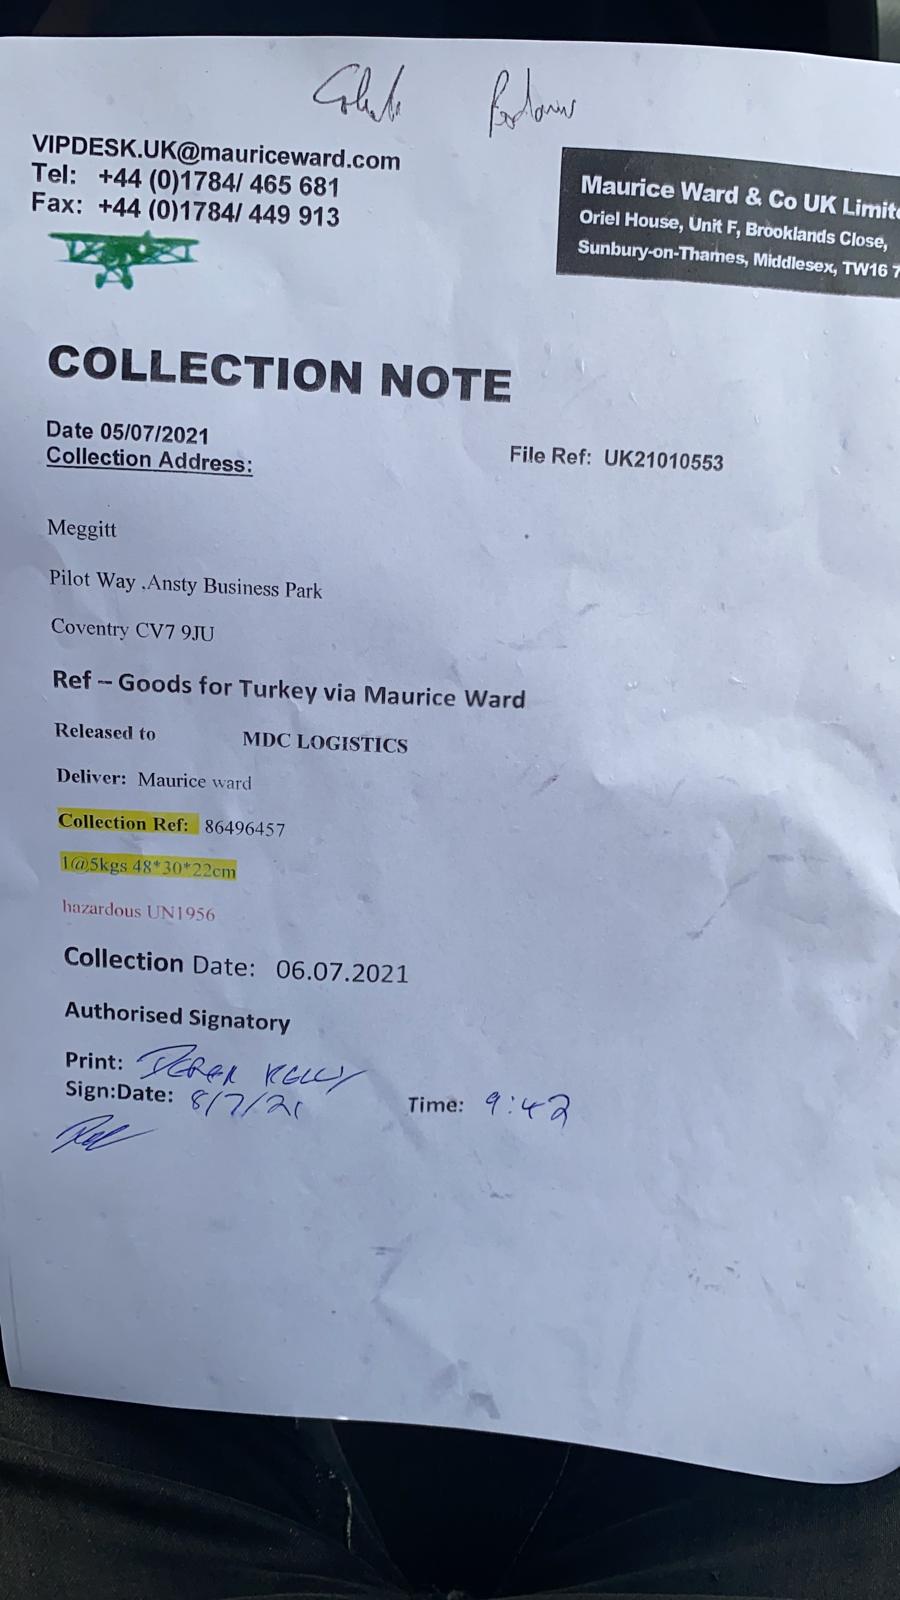 VIPDESK.UK@mauriceward.com
Tel: +44 (0)1784/ 465 681
Fax: +44 (0)1784/ 449 913
Maurice Ward & Co UK Limite
Oriel House, Unit F, Brooklands Close,
Sunbury-on-Thames, Middlesex, TW16 7
COLLECTION NOTE
Date 05/07/2021
File Ref: UK21010553
Collection Address:
Meggitt
Pilot Way .Ansty Business Park
Coventry CV7 9JU
Ref -- Goods for Turkey via Maurice Ward
Released to MDC LOGISTICS
Deliver: Maurice ward
Collection Ref: 86496457
1@5kgs 48*30*22cm
hazardous UN1956
Collection Date: 06.07.2021
Authorised Signatory
Print: DEREK KELLY
Sign:Date: 8/7/21 Time: 9:42